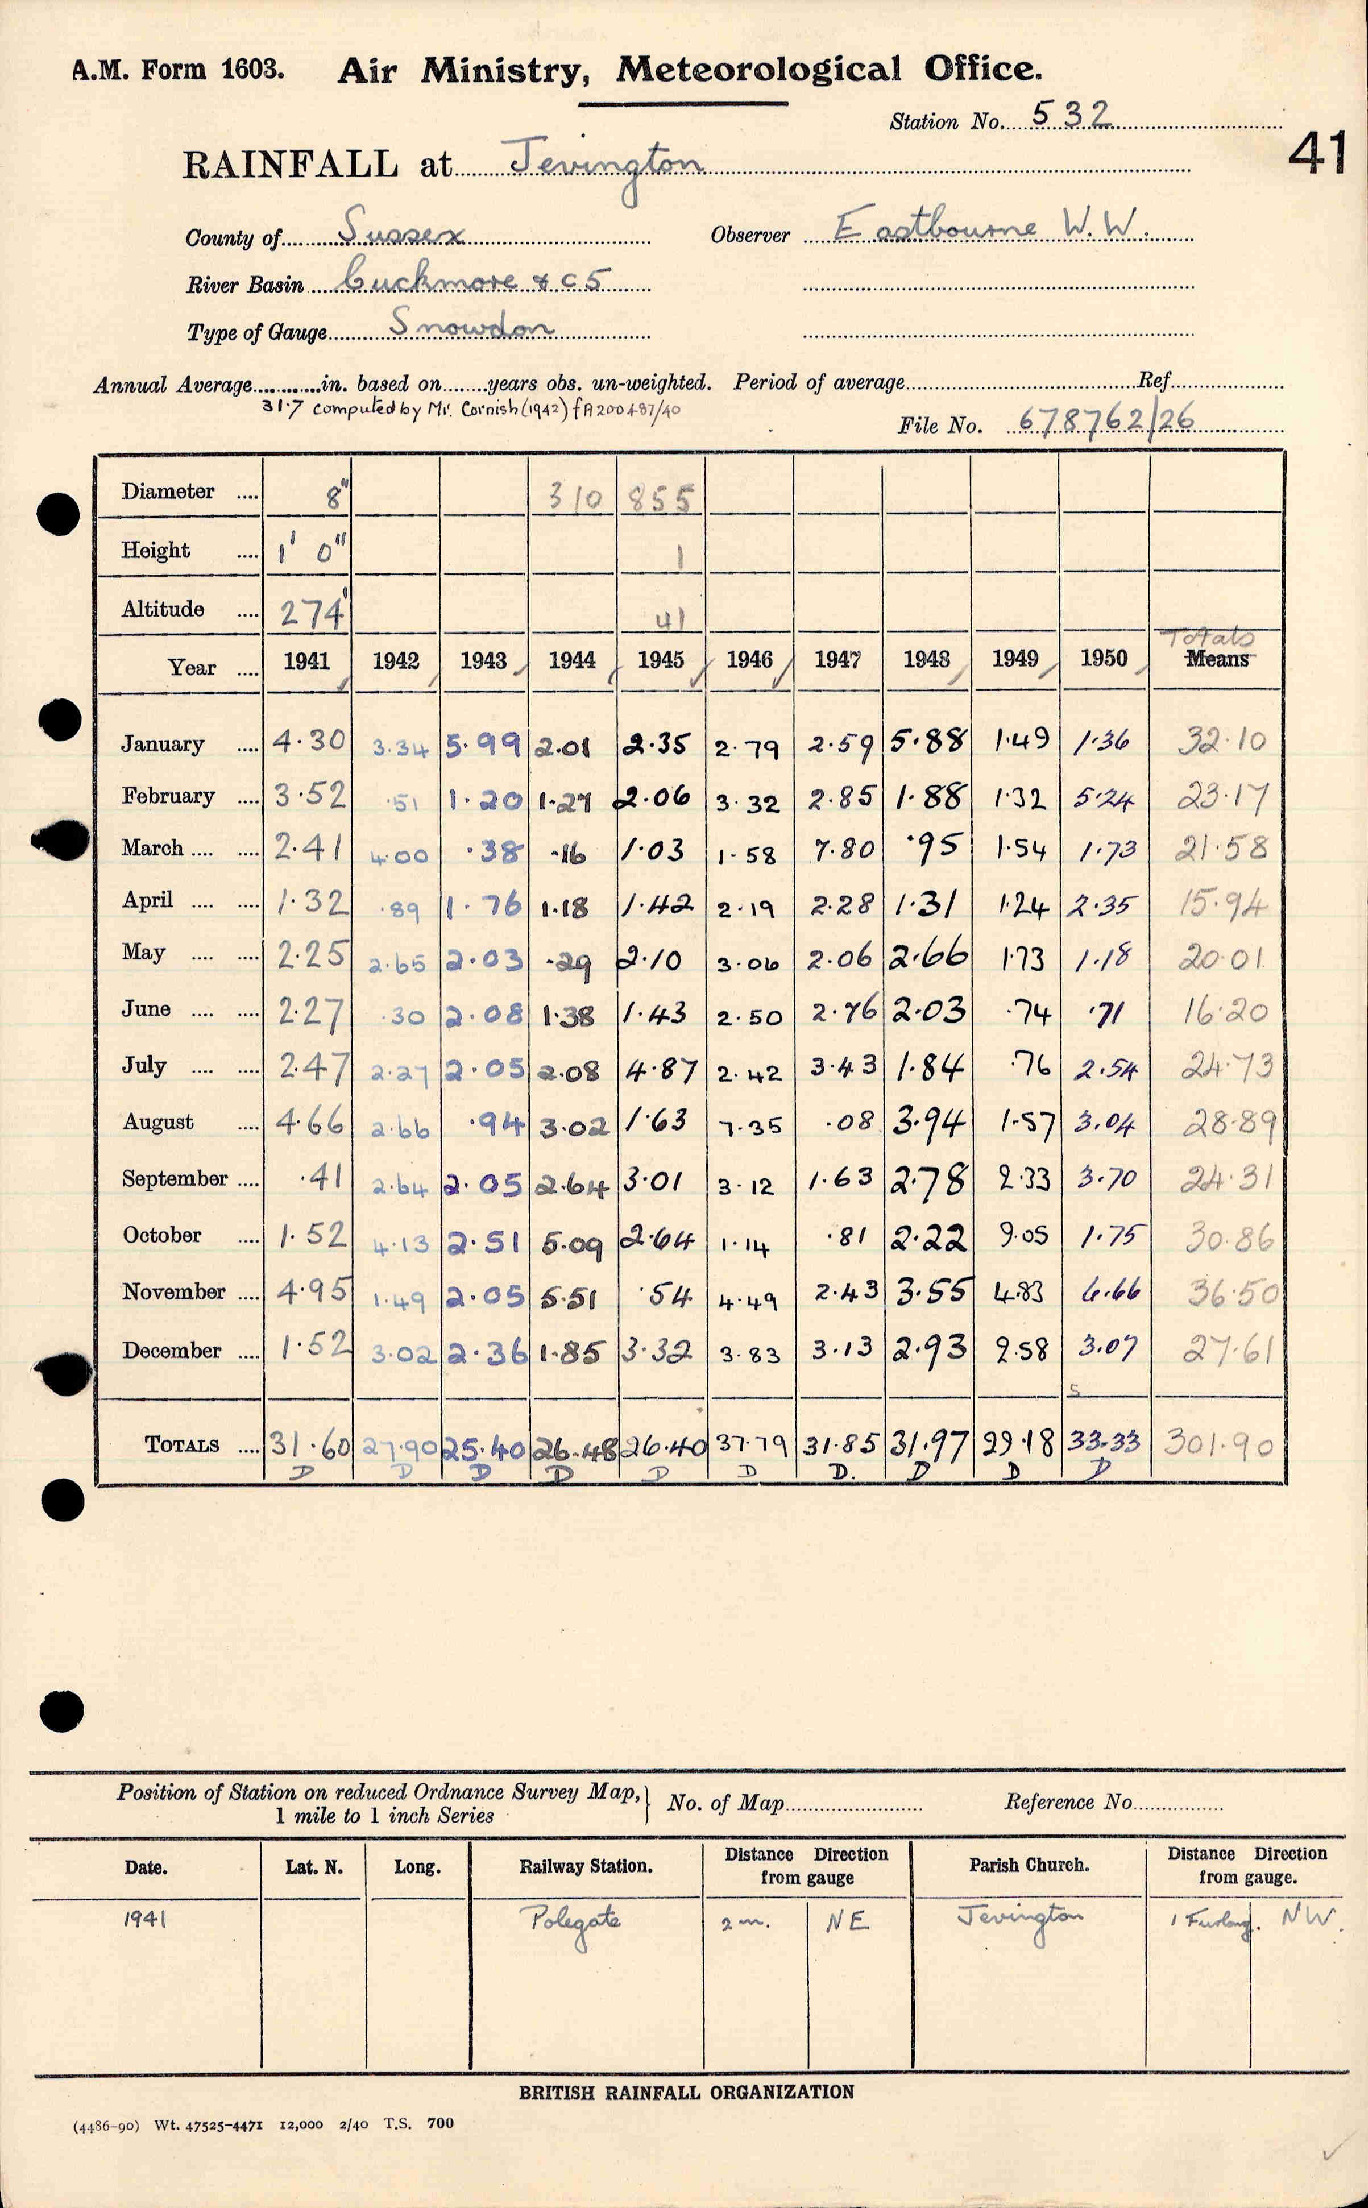 A.M. Form 1603. Air Ministry, Meteorological Office.
Station No. 532
41
RAINFALL at Jevington
County of Sussex Observer Eastbourne W.W.
River Basin Cuckmere & C5
Type of Gauge Snowdon
Annual Average in. based on years obs. un-weighted. Period of average Ref.
31.7 computed by Mr. Cornish (1942) fA200487/40
File No. 678762/26
Diameter 8" 310 855
Height 1' 0" 1
Altitude 274' 41
Totals
Year 1941 1942 1943 1944 1945 1946 1947 1948 1949 1950 Means
January 4.30 3.34 5.99 2.01 2.35 2.79 2.59 5.88 1.49 1.36 32.10
February 3.52 .51 1.20 1.27 2.06 3.32 2.85 1.88 1.32 5.24 23.17
March 2.41 4.00 .38 .16 1.03 1.58 7.80 .95 1.54 1.73 21.58
April 1.32 .89 1.76 1.18 1.42 2.19 2.28 1.31 1.24 2.35 15.94
May 2.25 2.65 2.03 .29 2.10 3.06 2.06 2.66 1.73 1.18 20.01
June 2.27 .30 2.08 1.38 1.43 2.50 2.76 2.03 .74 .71 16.20
July 2.47 2.27 2.05 2.08 4.87 2.42 3.43 1.84 .76 2.54 24.73
August 4.66 2.66 .94 3.02 1.63 7.35 .08 3.94 1.57 3.04 28.89
September .41 2.64 2.05 2.64 3.01 3.12 1.63 2.78 2.33 3.70 24.31
October 1.52 4.13 2.51 5.09 2.64 1.14 .81 2.22 9.05 1.75 30.86
November 4.95 1.49 2.05 5.51 .54 4.49 2.43 3.55 4.83 6.66 36.50
December 1.52 3.02 2.36 1.85 3.32 3.83 3.13 2.93 2.58 3.07 27.61
5
TOTALS 31.60 27.90 25.40 26.48 26.40 37.79 31.85 31.97 29.18 33.33 301.90
D D D D D D D. D D D
Position of Station on reduced Ordnance Survey Map, 1 mile to 1 inch Series No. of Map Reference No.
Date. Lat. N. Long. Railway Station. Distance Direction from gauge Parish Church. Distance Direction from gauge.
1941 Polegate 2 m. NE Jevington 1 Furlong. NW.
BRITISH RAINFALL ORGANIZATION
(4486-90) Wt. 47525-4471 12,000 2/40 T.S. 700